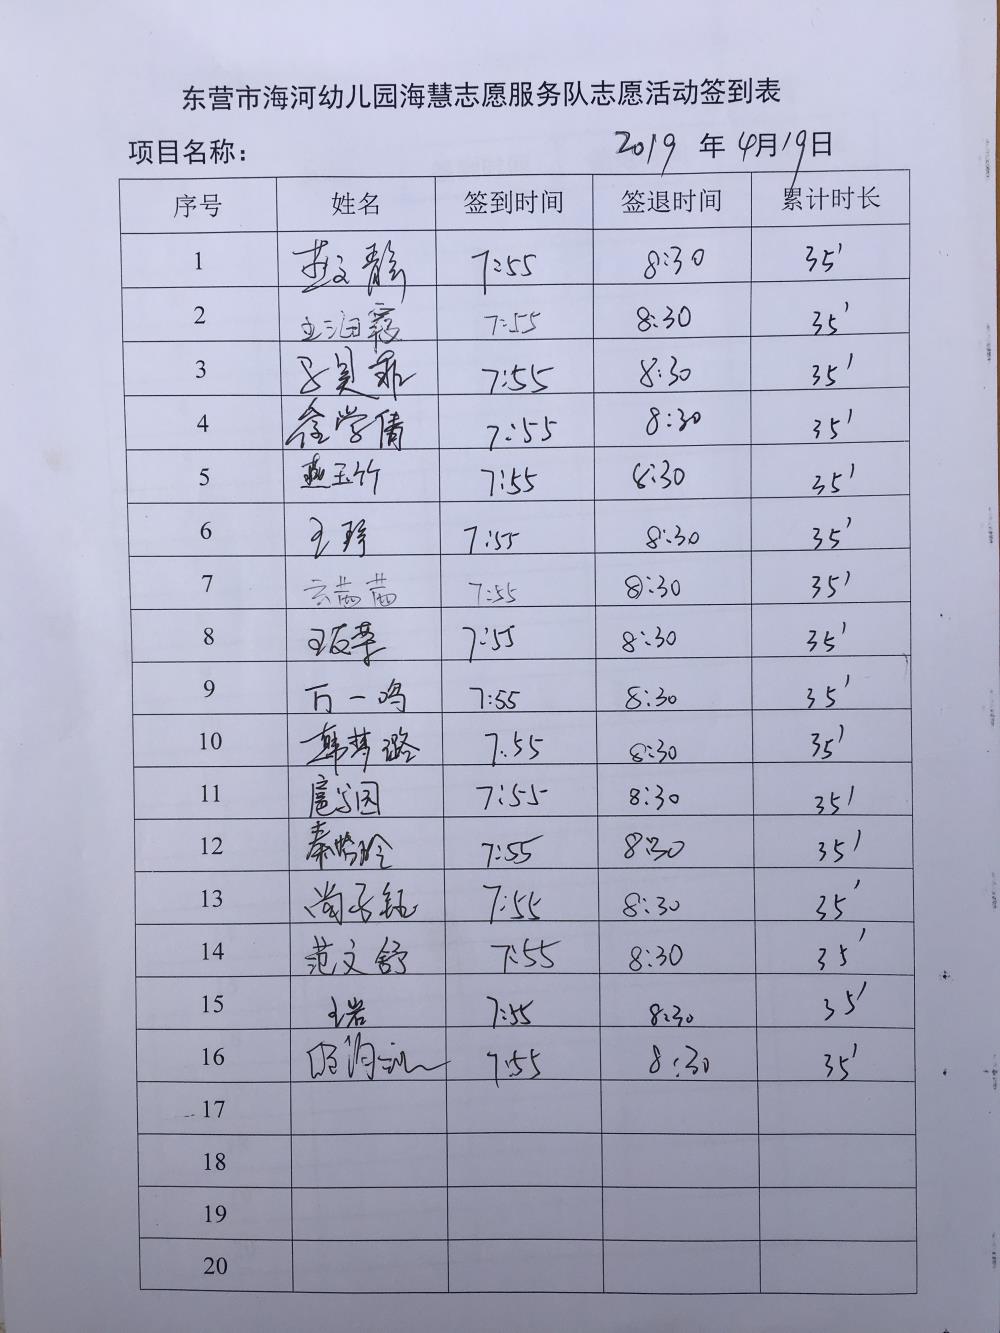 东营市海河幼儿园海慧志愿服务队志愿活动签到表
项目名称： 2019 年 4月19日
序号 姓名 签到时间 签退时间 累计时长
1 7:55 8:30 35'
2 王海霞 7:55 8:30 35'
3 7:55 8:30 35'
4 徐学倩 7:55 8:30 35'
5 燕玉竹 7:55 8:30 35'
6 王 7:55 8:30 35'
7 云茜茜 7:55 8:30 35'
8 王友苹 7:55 8:30 35'
9 万一鸣 7:55 8:30 35'
10 韩梦璐 7:55 8:30 35'
11 7:55 8:30 35'
12 秦 7:55 8:30 35'
13 尚子钰 7:55 8:30 35'
14 范文舒 7:55 8:30 35'
15 王岩 7:55 8:30 35'
16 7:55 8:30 35'
17
18
19
20